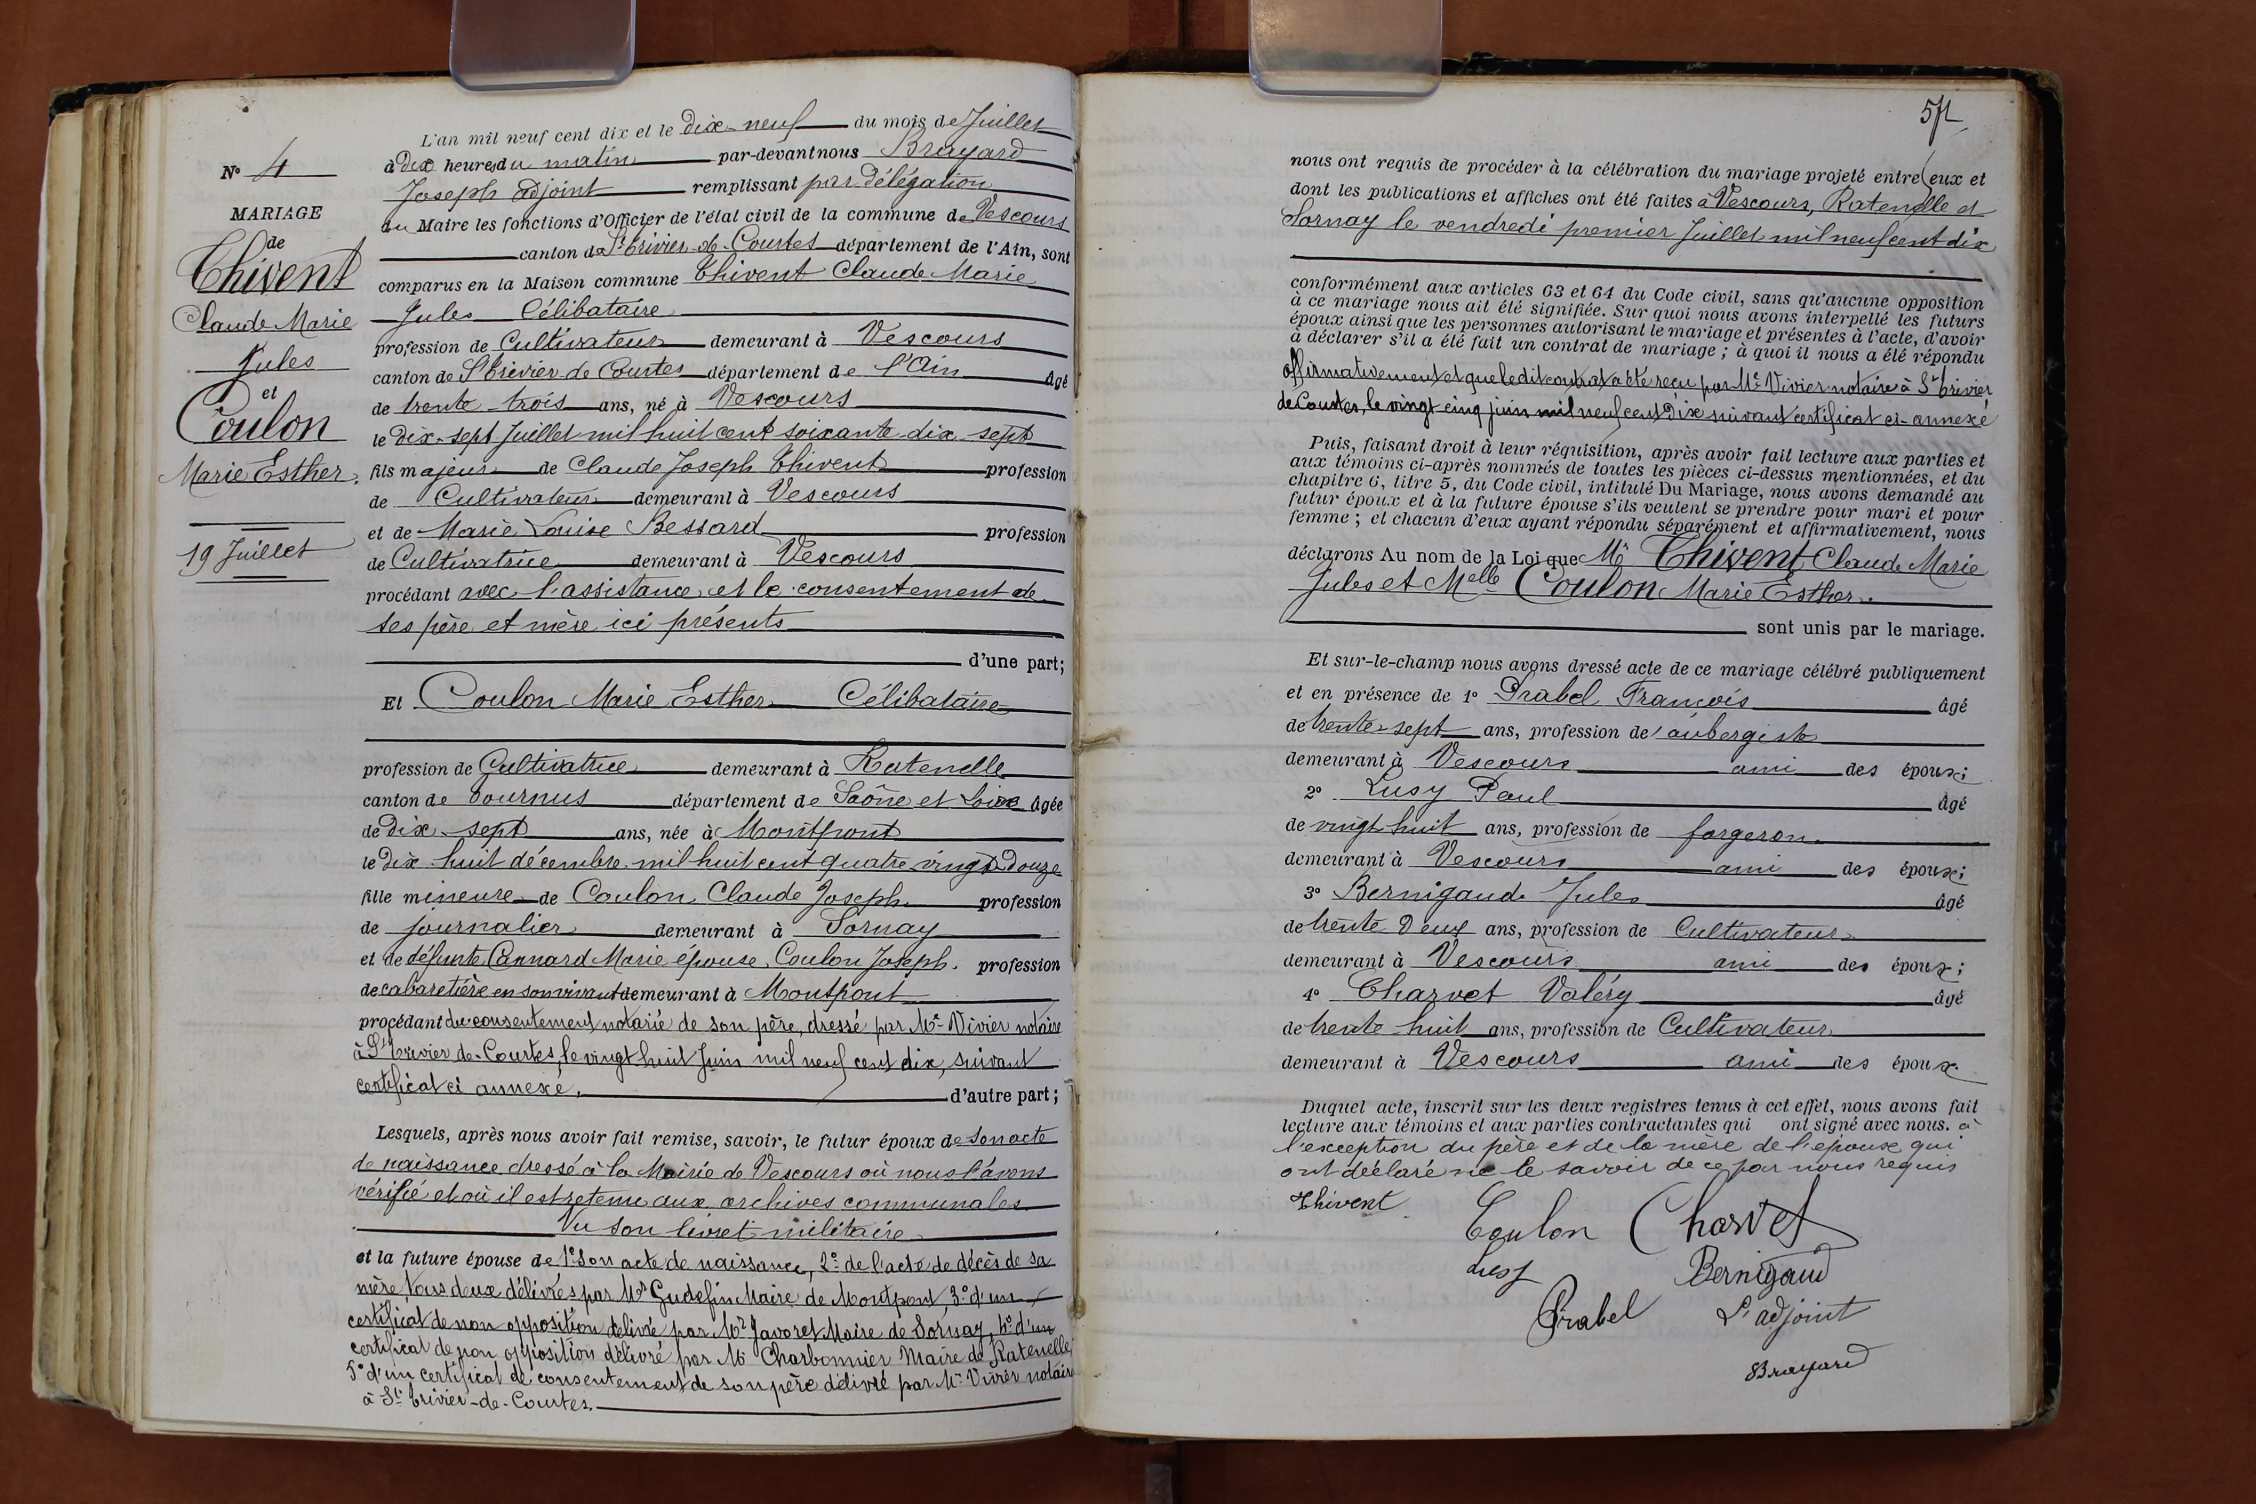 L'an mil neuf cent dix et le dix-neuf du mois de Juillet
à dix heures du matin par-devant nous Brayard
Joseph adjoint remplissant par délégation
du Maire les fonctions d'Officier de l'état civil de la commune de Vescours
canton de St Trivier-de-Courtes département de l'Ain, sont
comparus en la Maison commune Thivent Claude Marie
Jules Célibataire
profession de Cultivateur demeurant à Vescours
canton de St Trivier de Courtes département de l'Ain âgé
de trente-trois ans, né à Vescours
le dix-sept Juillet mil huit cent soixante-dix-sept
fils majeur de Claude Joseph Thivent profession
de Cultivateur demeurant à Vescours
et de Marie Louise Bessard profession
de Cultivatrice demeurant à Vescours
procédant avec l'assistance et le consentement de
ses père et mère ici présents
d'une part;
Et Coulon Marie Esther Célibataire
profession de Cultivatrice demeurant à Ratenelle
canton de Tournus département de Saône et Loire âgée
de dix-sept ans, née à Montpont
le dix-huit décembre mil huit cent quatre vingt douze
fille mineure de Coulon Claude Joseph profession
de journalier demeurant à Sornay
et de défunte Cannard Marie épouse Coulon Joseph. profession
de cabaretière en son vivant demeurant à Montpont
procédant du consentement notarié de son père, dressé par Me Vivier notaire
à St Trivier-de-Courtes, le vingt huit Juin mil neuf cent dix, suivant
certificat ci annexé. d'autre part;
Lesquels, après nous avoir fait remise, savoir, le futur époux de son acte
de naissance dressé à la Mairie de Vescours où nous l'avons
vérifié et où il est retenu aux archives communales
Vu son livret militaire
et la future épouse de 1° Son acte de naissance, 2° de l'acte de décès de sa
mère, tous deux délivrés par Mr Gudefin Maire de Montpont, 3° d'un
certificat de non opposition délivré par Mr Javoret Maire de Sornay, 4° d'un
certificat de non opposition délivré par Mr Charbonnier Maire de Ratenelle
5° d'un certificat de consentement de son père délivré par Me Vivier notaire
à St Trivier-de-Courtes.
N° 4
MARIAGE
de
Thivent
Claude Marie
Jules
et
Coulon
Marie Esther.
19 Juillet
nous ont requis de procéder à la célébration du mariage projeté entre eux et
dont les publications et affiches ont été faites à Vescours, Ratenelle et
Sornay le vendredi premier Juillet mil neuf cent dix
conformément aux articles 63 et 64 du Code civil, sans qu'aucune opposition
à ce mariage nous ait été signifiée. Sur quoi nous avons interpellé les futurs
époux ainsi que les personnes autorisant le mariage et présentes à l'acte, d'avoir
à déclarer s'il a été fait un contrat de mariage ; à quoi il nous a été répondu
affirmativement et que ledit contrat a été reçu par Me Vivier notaire à St Trivier
de Courtes, le vingt cinq juin mil neuf cent dix suivant certificat ci-annexé
Puis, faisant droit à leur réquisition, après avoir fait lecture aux parties et
aux témoins ci-après nommés de toutes les pièces ci-dessus mentionnées, et du
chapitre 6, titre 5, du Code civil, intitulé Du Mariage, nous avons demandé au
futur époux et à la future épouse s'ils veulent se prendre pour mari et pour
femme ; et chacun d'eux ayant répondu séparément et affirmativement, nous
déclarons Au nom de la Loi que Mr Thivent Claude Marie
Jules et Melle Coulon Marie Esther.
sont unis par le mariage.
Et sur-le-champ nous avons dressé acte de ce mariage célébré publiquement
et en présence de 1° Prabel François âgé
de trente-sept ans, profession de aubergiste
demeurant à Vescours ami des époux;
2° Lusy Paul âgé
de vingt huit ans, profession de forgeron
demeurant à Vescours ami des époux;
3° Bernigaud Jules âgé
de trente deux ans, profession de Cultivateur
demeurant à Vescours ami des époux;
4° Charvet Valéry âgé
de trente huit ans, profession de Cultivateur
demeurant à Vescours ami des époux.
Duquel acte, inscrit sur les deux registres tenus à cet effet, nous avons fait
lecture aux témoins et aux parties contractantes qui ont signé avec nous. à
l'exception du père et de la mère de l'epoux qui
ont déclaré ne le savoir de ce par nous requis
Thivent
Coulon Charvet
Bernigaud
Prabel L'adjoint
Brayard